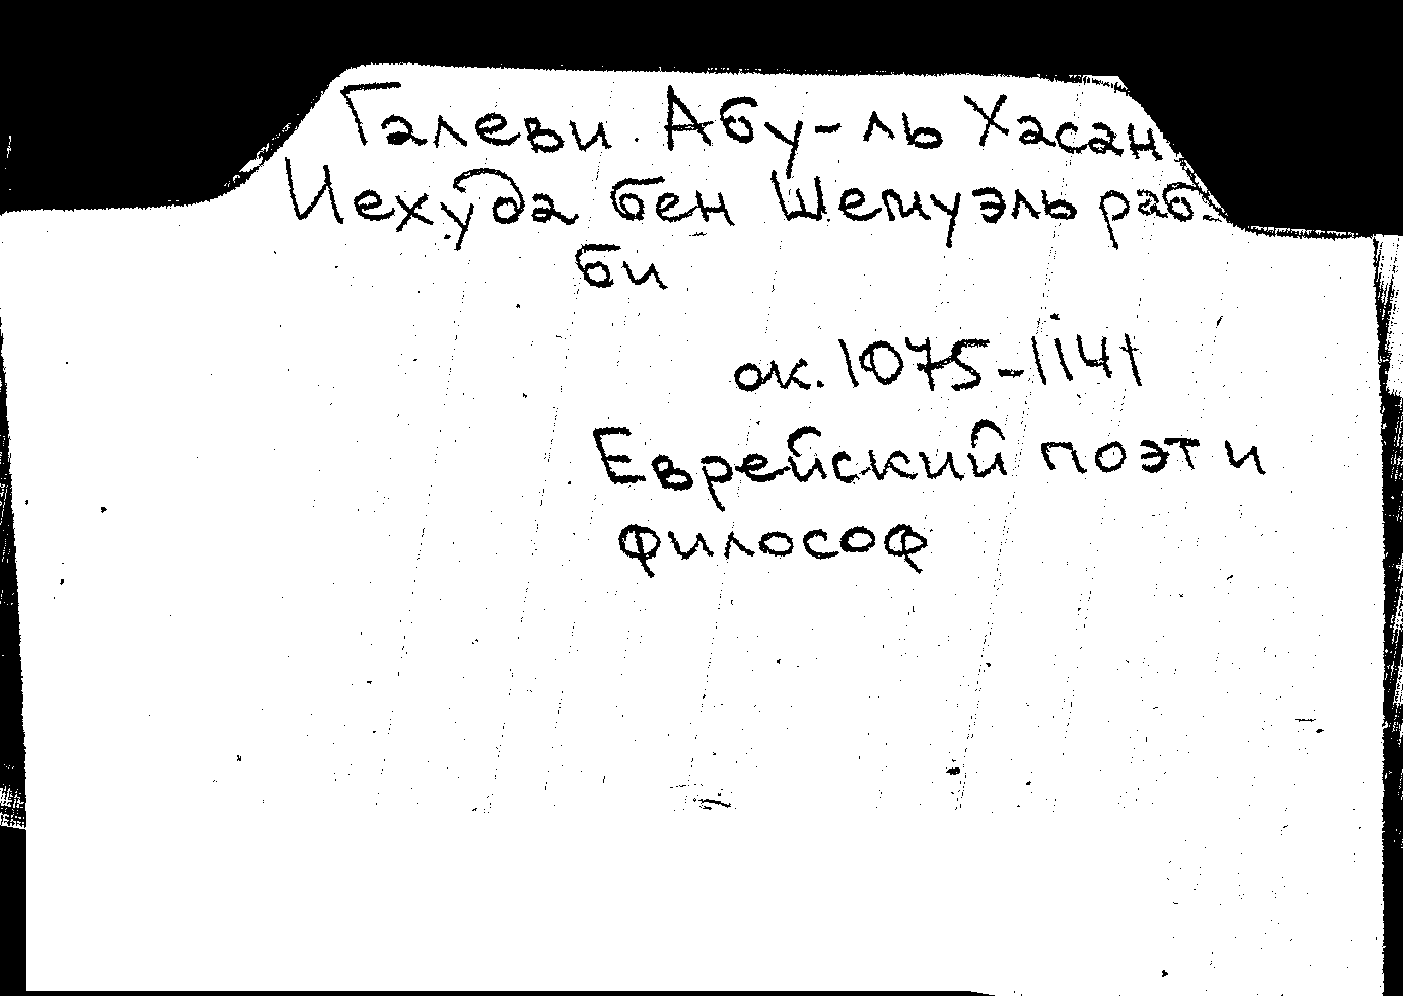 Галеви. Абу-ль Хасан
Иехуда бен Шемуэль раб-
би
ок. 1075-1141
Еврейский поэт и
философ